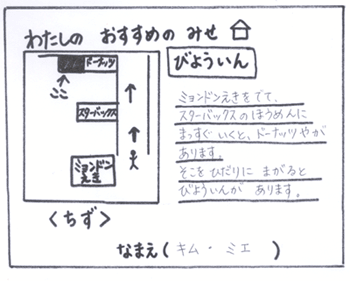 わたしの おすすめの みせ
びよういん
ドーナッツ
ここ
スターバックス
ミョンドン
えき
<ちず>
ミョンドンえきをでて、
スターバックスのほうめんに
まっすぐ いくと、ドーナッツやが
あります。
そこを ひだりに まがると
びよういんが あります。
なまえ(キム・ミエ)